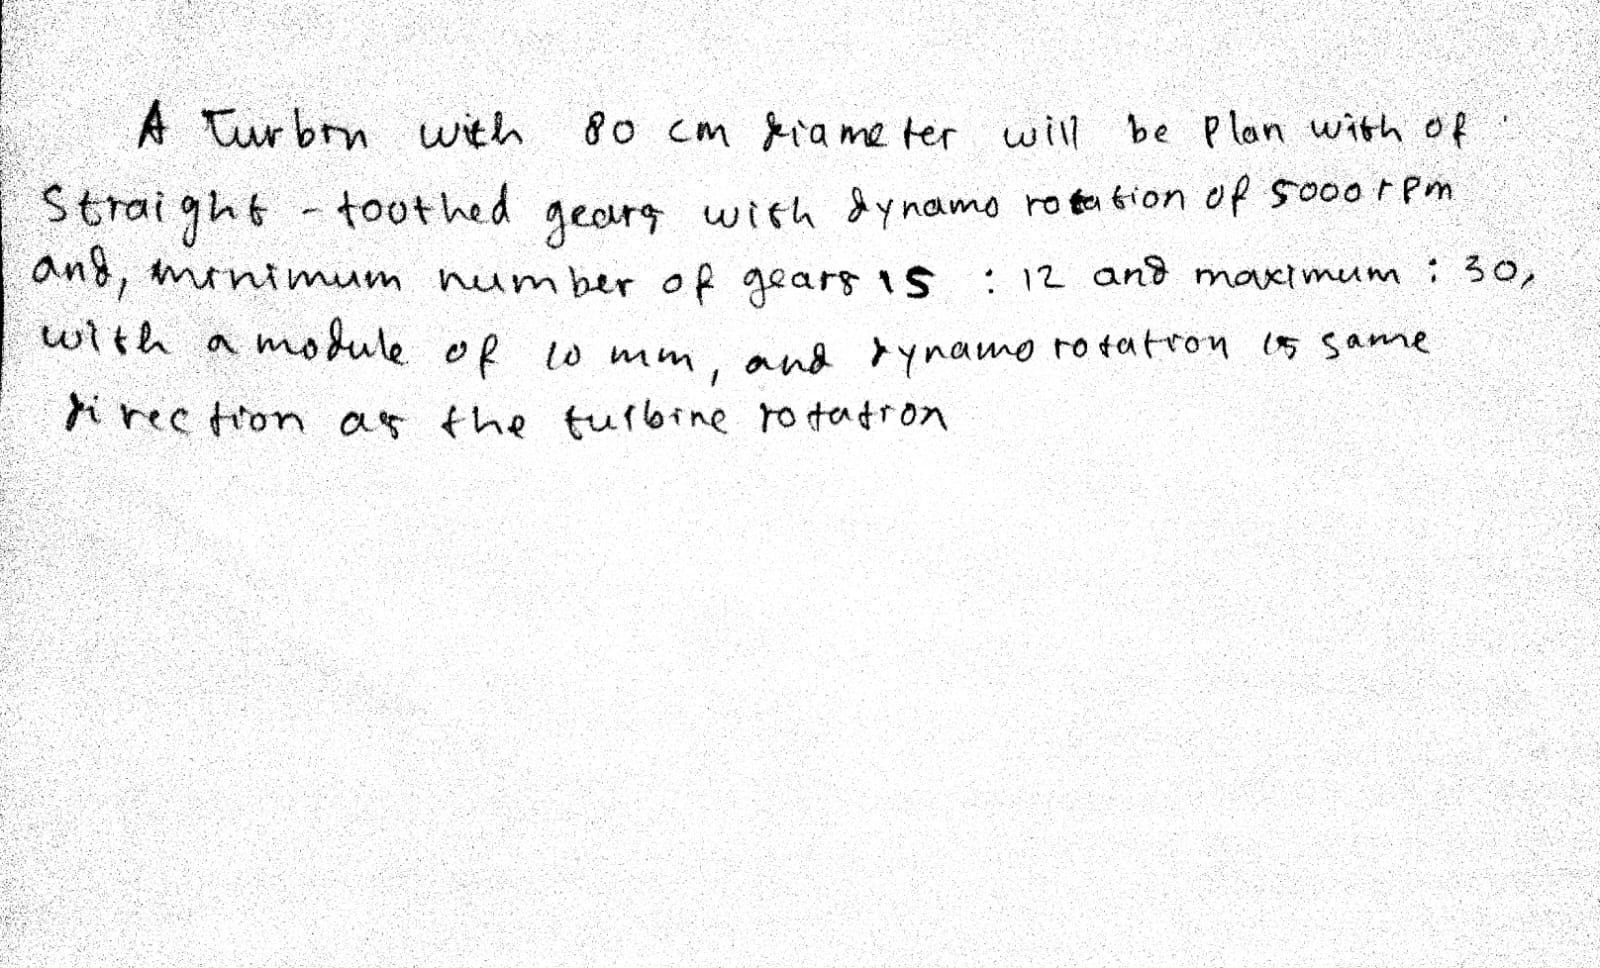 A Turbin with 80 cm diameter will be plan with of
Straight - toothed gears with dynamo rotation of 5000 rpm
and, minimum number of gears is : 12 and maximum : 30,
with a module of 10 mm, and dynamo rotation is same
direction as the turbine rotation